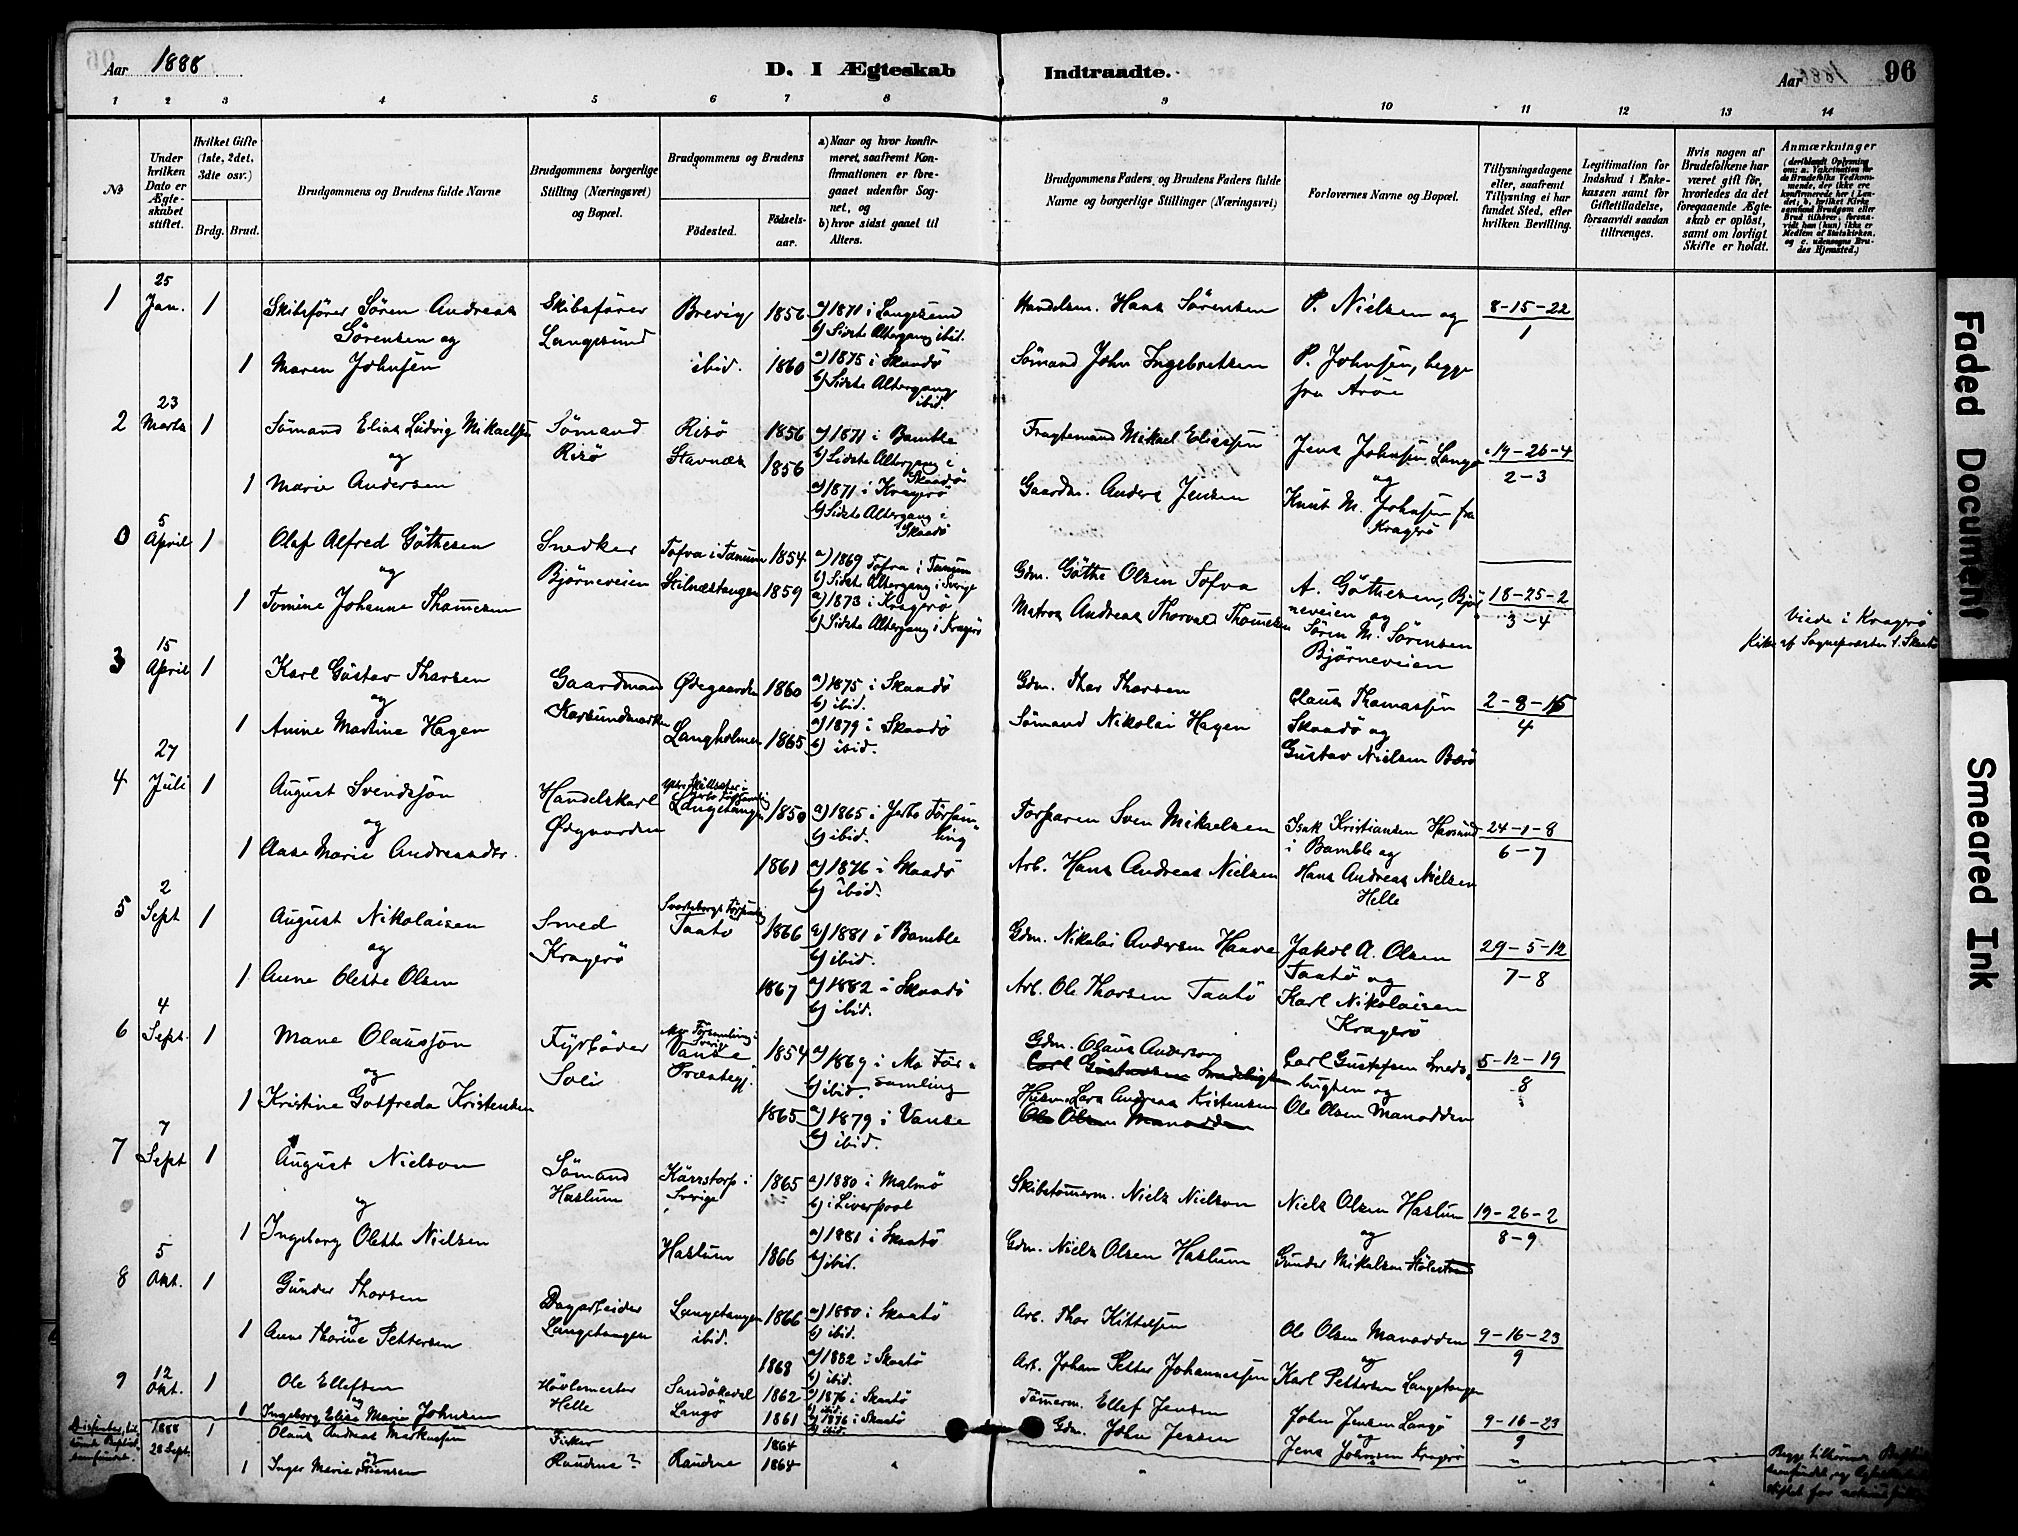 Aar 1888
D. I Ægteskab Indtraadte.
Aar 96
1 2 3 4 5 6 7 8 9 10 11 12 13 14
№
Under hvilken Dato er Ægteskabet stiftet.
Hvilket Gifte (1ste, 2det, 3die osv.)
Brdg. Brud.
Brudgommens og Brudens fulde Navne
Brudgommens borgerlige Stilling (Næringsvei) og Bopæl.
Brudgommens og Brudens
Födested.
Födselsaar.
a) Naar og hvor konfirmeret, saafremt Konfirmationen er foregaaet udenfor Sognet, og
b) hvor sidst gaaet til Alters.
Brudgommens Faders og Brudens Faders fulde Navne og borgerlige Stillinger (Næringsvei)
Forlovernes Navne og Bopæl.
Tillysningsdagene eller, saafremt Tillysning ei har fundet Sted, efter hvilken Bevilling.
Legitimation for Indskud i Enkekassen samt for Giftetilladelse, forsaavidt saadan tiltrænges.
Hvis nogen af Brudefolkene har været gift før, hvorledes da det foregaaende Ægteskab er oplöst, samt om lovligt Skifte er holdt.
Anmærkninger
1 25 Jan. 1 Skibsfører Sören Andreas Sörensen og
Skibsfører Langesund Brevig 1856 a) 1871 i Langesund
b) Sidste Altergang ibid.
Handelsm. Hans Sörensen P. Nielsen og 8-15-22 / 1
1 Maren Johnsen ibid. 1860 a) 1875 i Skaadö
b) Sidste Altergang ibid.
Sömand John Ingebretsen P. Johnsen, begge fra Aröe
2 23 Marts 1 Sömand Elias Ludvig Mikaelsen og
Sömand Risö Risö 1856 a) 1871 i Bamble
b) Sidste Altergang i Skaadö
Fragtemand Mikael Eliassen Jens Johnsen Langö og 19-26-4 / 2-3
1 Marie Andersen Stavnæs 1856 a) 1871 i Kragerö
b) Sidste Altergang i Skaadö
Gaardm. Anders Jensen Knut M. Johnsen fra Kragerö
0 5 April 1 Olaf Alfred Göthesen og
Snedker Bjørneveien Tofva i Tanum 1854 a) 1869 Tofva i Tanum
b) Sidste Altergang i Sverige
Gdm. Göthe Olsen Tofva A. Göthesen, Bjørneveien og 18-25-2 / 3-4
1 Tomine Johanne Thomesen Stilnæstangen 1859 a) 1873 i Kragerö
b) Sidste Altergang i Kragerö
Matros Andreas Thorvald Thomesen Sören M. Sörensen Bjørneveien
Viede i Kragerö Kirke af Sognepræsten t. Skaatö
3 15 April 1 Karl Gustav Tharsen og
Gaardmand Ødegaarden 1860 a) 1875 i Skaadö
b) ibid.
Gdm. Thor Tharsen Claus Thomassen Skaadö og 2-8-15 / 4
1 Anine Martine Hagen Langholmen 1865 a) 1879 i Skaadö
b) ibid.
Sömand Nikolai Hagen Gustav Nielsen Bærö
4 27 Juli 1 August Svendsjon og
Handelskarl Ødegaarden Langetangen 1850 a) 1865 i Forsamling
b) ibid.
Torparen Sven Mikaelsen Isak Kristiansen Havsund i Bamble og 24-1-8 / 6-7
1 Aase Marie Andreasdtr. 1861 a) 1876 i Skaadö
b) ibid.
Arb. Hans Andreas Nielsen Hans Andreas Nielsen Helle
5 2 Sept 1 August Nikolaisen og
Smed Kragerö Taatö 1866 a) 1881 i Bamble
b) ibid.
Gdm. Nikolai Andersen Haave Jakob A. Olsen Taatö og 29-5-12 / 7-8
1 Anne Oleste Olsen 1867 a) 1882 i Skaadö
b) ibid.
Arb. Ole Thorsen Taatö Karl Nikolaisen Kragerö
6 4 Sept. 1 Mane Olaussön og
Fyrböder Soli Mo Församling i Sverige 1854 a) 1869 i Mo Församling
b) ibid.
Gdm. Olaus Anderson
Carl Gustavsen Smedsbugten
Carl Gustafsen Smedsbugten og 5-12-19 / 8
1 Kristine Gotfreda Kristensen Vanse Præstegj. 1865 a) 1879 i Vanse
b) ibid.
Husm. Lars Andreas Kristensen
Ole Olsen Manodden
Ole Olsen Manodden
7 7 Sept 1 August Nielson og
Sömand Haslum Kärrstorp i Sverige 1865 a) 1880 i Malmö
b) i Liverpool
Skibstömerm. Niels Nielson Niels Olsen Haslum og 19-26-2 / 8-9
1 Ingeborg Olette Nielsen Haslum 1866 a) 1881 i Skaatö
b) ibid.
Gdm. Niels Olsen Haslum Gunder Mikalsen
8 5 Okt. 1 Gunder Thorsen og
Dagarbeider Langetangen Langetangen 1866 a) 1880 i Skaatö
b) ibid.
Arb. Thor Kittelsen Ole Olsen Manodden og 9-16-23 / 9
1 Anne Thorine Pettersen ibid. 1868 a) 1882 i Skaatö
b) ibid.
Arb. Johan Petter Johannessen Karl Pettersen Langetangen
9 12 Okt. 1 Ole Ellefsen og
Hövlemester Helle Sandökedel 1862 a) 1876 i Skaatö
b) ibid.
Tömerm. Ellef Jensen John Jensen Langö og 9-16-23 / 9
1 Ingeborg Elise Marie Johnsen Langö 1861 a) 1876 i Skaatö
b) ibid.
Gdm. John Jensen Jens Johnsen Kragerö
1888 28 Sept. 1 Olaus Andreas Markussen og
Fisker Raudnæ? Raudnæ 1864
1 Inger Marie 1864
Faded Document
Smeared Ink